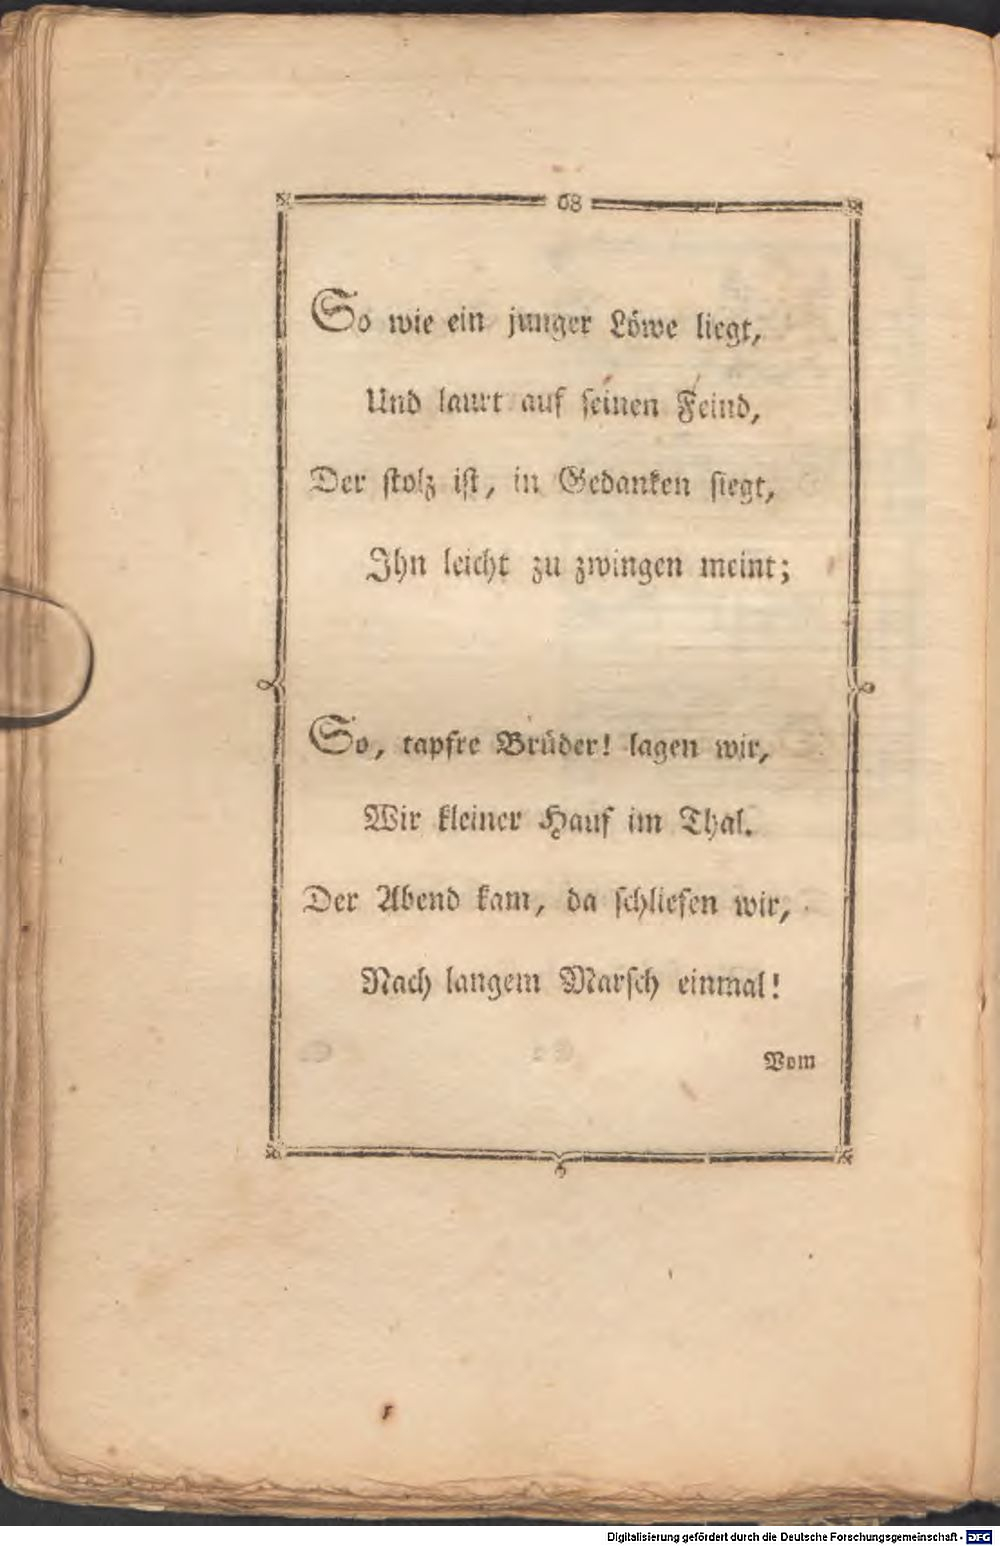 68
So wie ein junger Löwe liegt,
Und laurt auf seinen Feind,
Der stolz ist, in Gedanken siegt,
Ihn leicht zu zwingen meint;
So, tapfre Brüder! lagen wir,
Wir kleiner Hauf im Thal.
Der Abend kam, da schliefen wir,
Nach langem Marsch einmal!
Vom
Digitalisierung gefördert durch die Deutsche Forschungsgemeinschaft - DFG